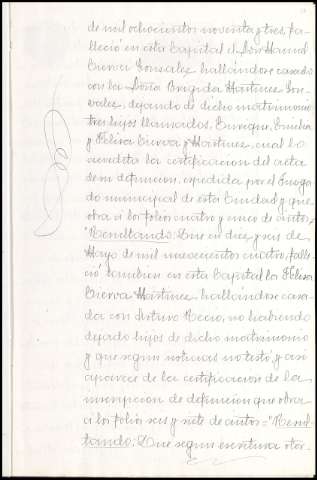 de mil ochocientos noventa y tres, fa-
lleció en esta Capital el Don Manuel
Cueva Gonzalez hallándose casado
con la Doña Brigida Martinez Gon-
zalez, dejando de dicho matrimonio
tres hijos llamados, Enrique, Emilia
y Felisa Cueva y Martinez, cual lo
acredita la certificacion del acta
de su defuncion, expedida por el Juzga
do municipal de esta Ciudad y que
obra á los folios cuatro y cinco de autos=
"Resultando: Que en diez y seis de
Mayo de mil novecientos cuatro, falle-
ció tambien en esta Capital la Felisa
Cueva Martinez hallándose casa-
da con Arturo Recio, no habiendo
dejado hijos de dicho matrimonio
y que segun noticias no testó y asi
aparece de la certificacion de la
inscripcion de defuncion que obra
á los folios seis y siete de autos="Resul-
tando: Que segun escritura otor-